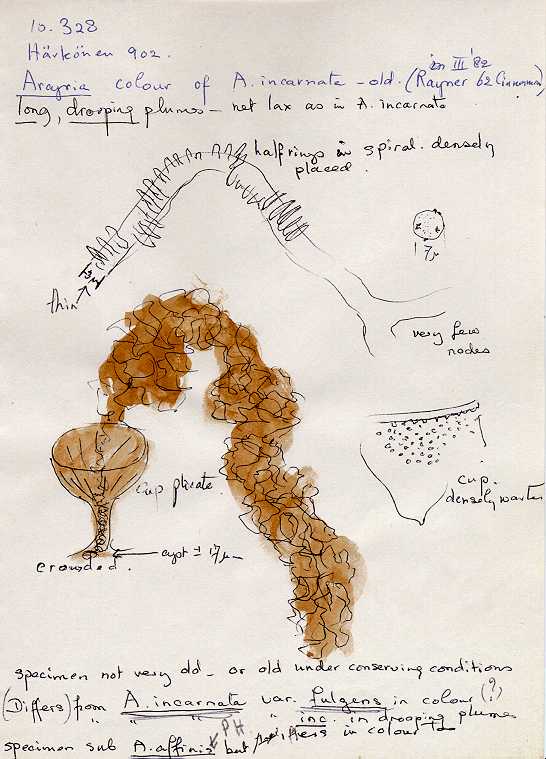 10.328
Härkönen 902.
in III '82
Arcyria colour of A. incarnata - old. (Rayner 62 Cinnamon)
long, drooping plumes - not lax as in A. incarnata
half rings in spiral. densely
placed.
17µ
thin
very few
nodes
cup plicate
cup.
densely warted
crowded.
cyst ± 17µm
specimen not very old - or old under conserving conditions
(Differs) from A. incarnata var. fulgens in colour (?)
" " " " inc. in drooping plumes
PH
specimen sub A. affinis but differs in colour